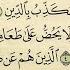 يُكَذِّبُ بِٱلدِّينِ
وَلَا يَحُضُّ عَلَىٰ طَعَامِ
ٱلَّذِينَ هُمْ عَن